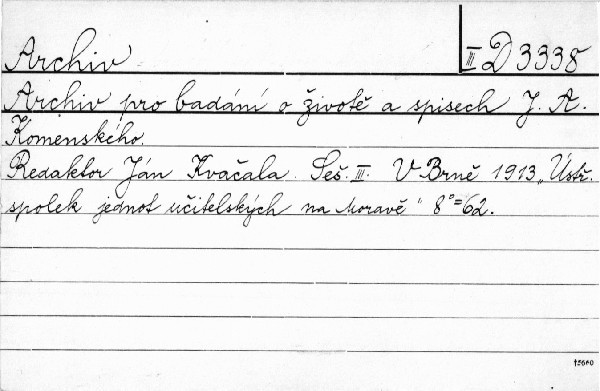 Archiv
III D 3338
Archiv pro badání o životě a spisech J. A.
Komenského.
Redaktor Ján Kvačala. Seš. III. V Brně 1913 „Ústř.
spolek jednot učitelských na Moravě“ 8°=62.
15660